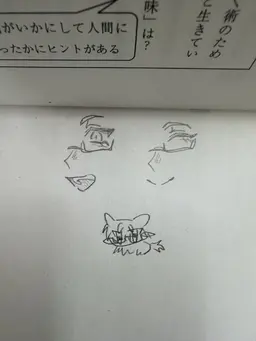 、術のため
と生きてい
味」は？
がいかにして人間に
ったかにヒントがある